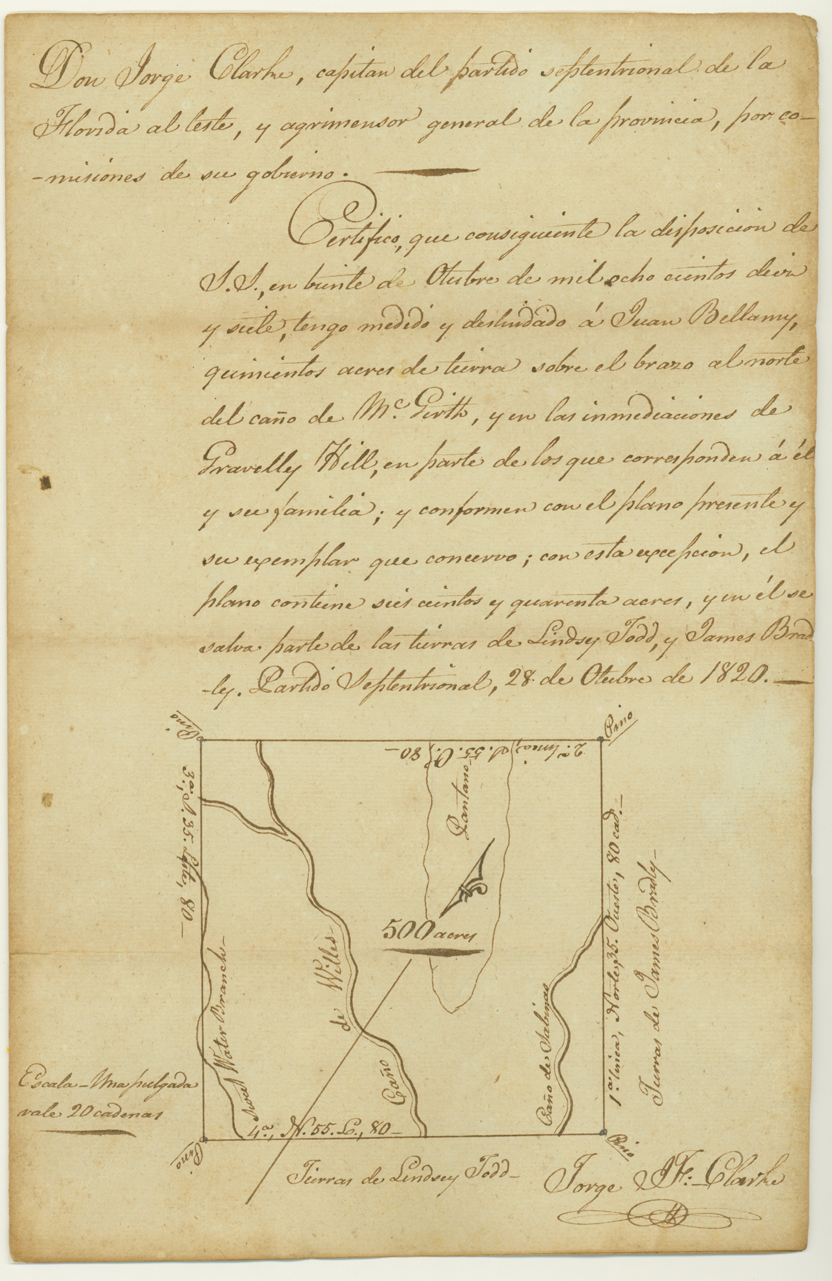 Don Jorge Clarke, capitan del partido septentrional de la
Florida al leste, y agrimensor general de la provincia, por co-
-misiones de su gobierno.
Certifico, que consiguiente la disposicion de
S.S., en veinte de Otubre de mil ocho cientos diez
y siete, tengo medido y deslindado á Juan Bellamy,
quinientos acres de tierra sobre el brazo al norte
del caño de Mc. Girth, y en las inmediaciones de
Gravelly Hill, en parte de los que corresponden á él
y su familia; y conformen con el plano presente y
su exemplar que concervo; con esta excepcion, el
plano contiene seis cientos y quarenta acres, y en él se
salva parte de las tierras de Lindsey Todd, y James Brad
-ly. Partido Septentrional, 28 de Otubre de 1820.
Pino
Pino
2a. linea, S. 55. O., 80
3a., S. 35. Leste, 80
Pantano
500 acres
1a. linea, Norte, 35. Oueste, 80 cad.
Tierras de James Bradly
de Willes
Caño
Sweet Water Branch
Caño de Sabinas
Escala - Una pulgada
vale 20 cadenas
4a., N. 55. L., 80
Pino
Pino
Tierras de Lindsey Todd
Jorge J. F. Clarke